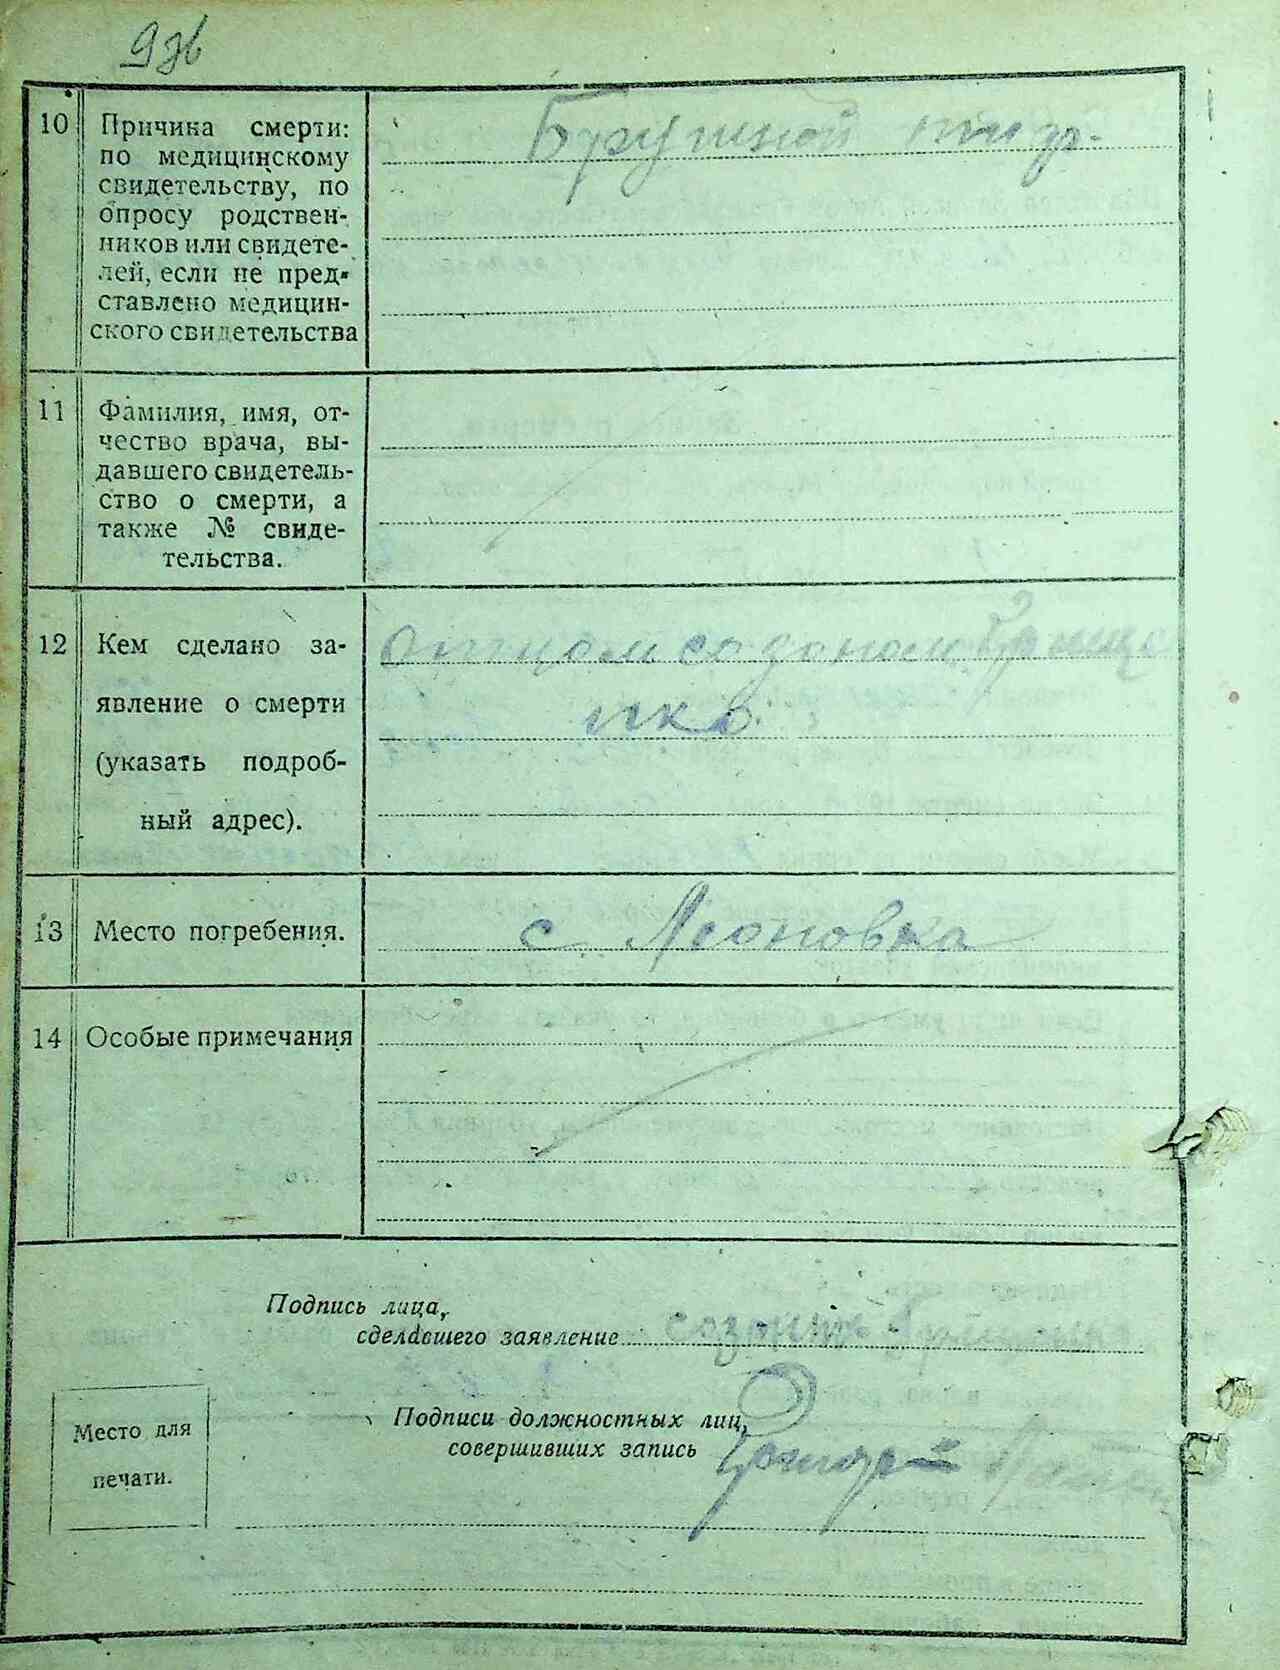 10 Причина смерти: Брушной тиф.
по медицинскому
свидетельству, по
опросу родствен-
ников или свидете-
лей, если не пред-
ставлено медицин-
ского свидетельства
11 Фамилия, имя, от-
чество врача, вы-
давшего свидетель-
ство о смерти, а
также № свиде-
тельства.
12 Кем сделано за-
явление о смерти
(указать подроб-
ный адрес).
отцом созоном
13 Место погребения. с Леоновка
14 Особые примечания
Подпись лица,
сделавшего заявление созонт
Подписи должностных лиц,
совершивших запись
Место для
печати.